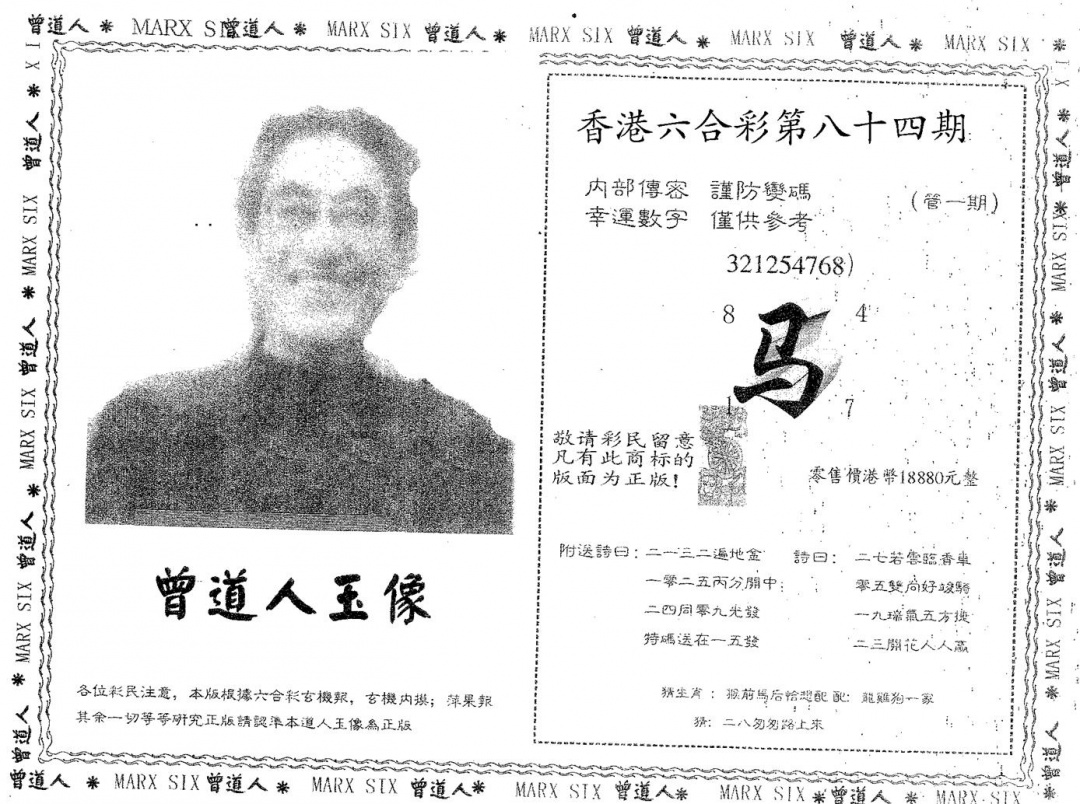 曾道人 * MARX S 曾道人 * MARX SIX 曾道人 * MARX SIX 曾道人 * MARX SIX 曾道人 * MARX SIX *
曾道人玉像
各位彩民注意，本版根據六合彩玄機報，玄機内摸；萍果報
其余一切等等研究正版請認準本道人玉像為正版
香港六合彩第八十四期
内部傳密 謹防變碼
幸運數字 僅供參考
(管一期)
321254768)
8 4
马
1 7
敬请彩民留意
凡有此商标的
版面为正版！
零售價港幣18880元整
附送詩曰：二一三二遍地金
一零二五丙分開中；
二四同零九光發
特碼送在一五發
詩曰： 二七若雲臨香車
零五雙向好駿騎
一九瑞氣五方從
二三開花人人贏
猜生肖：猴前馬后恰想配 配：龍雞狗一家
猜：二八匆匆路上來
曾道人 * MARX SIX 曾道人 * MARX SIX 曾道人 * MARX SIX 曾道人 * MARX SIX * 曾道人 * MARX SIX